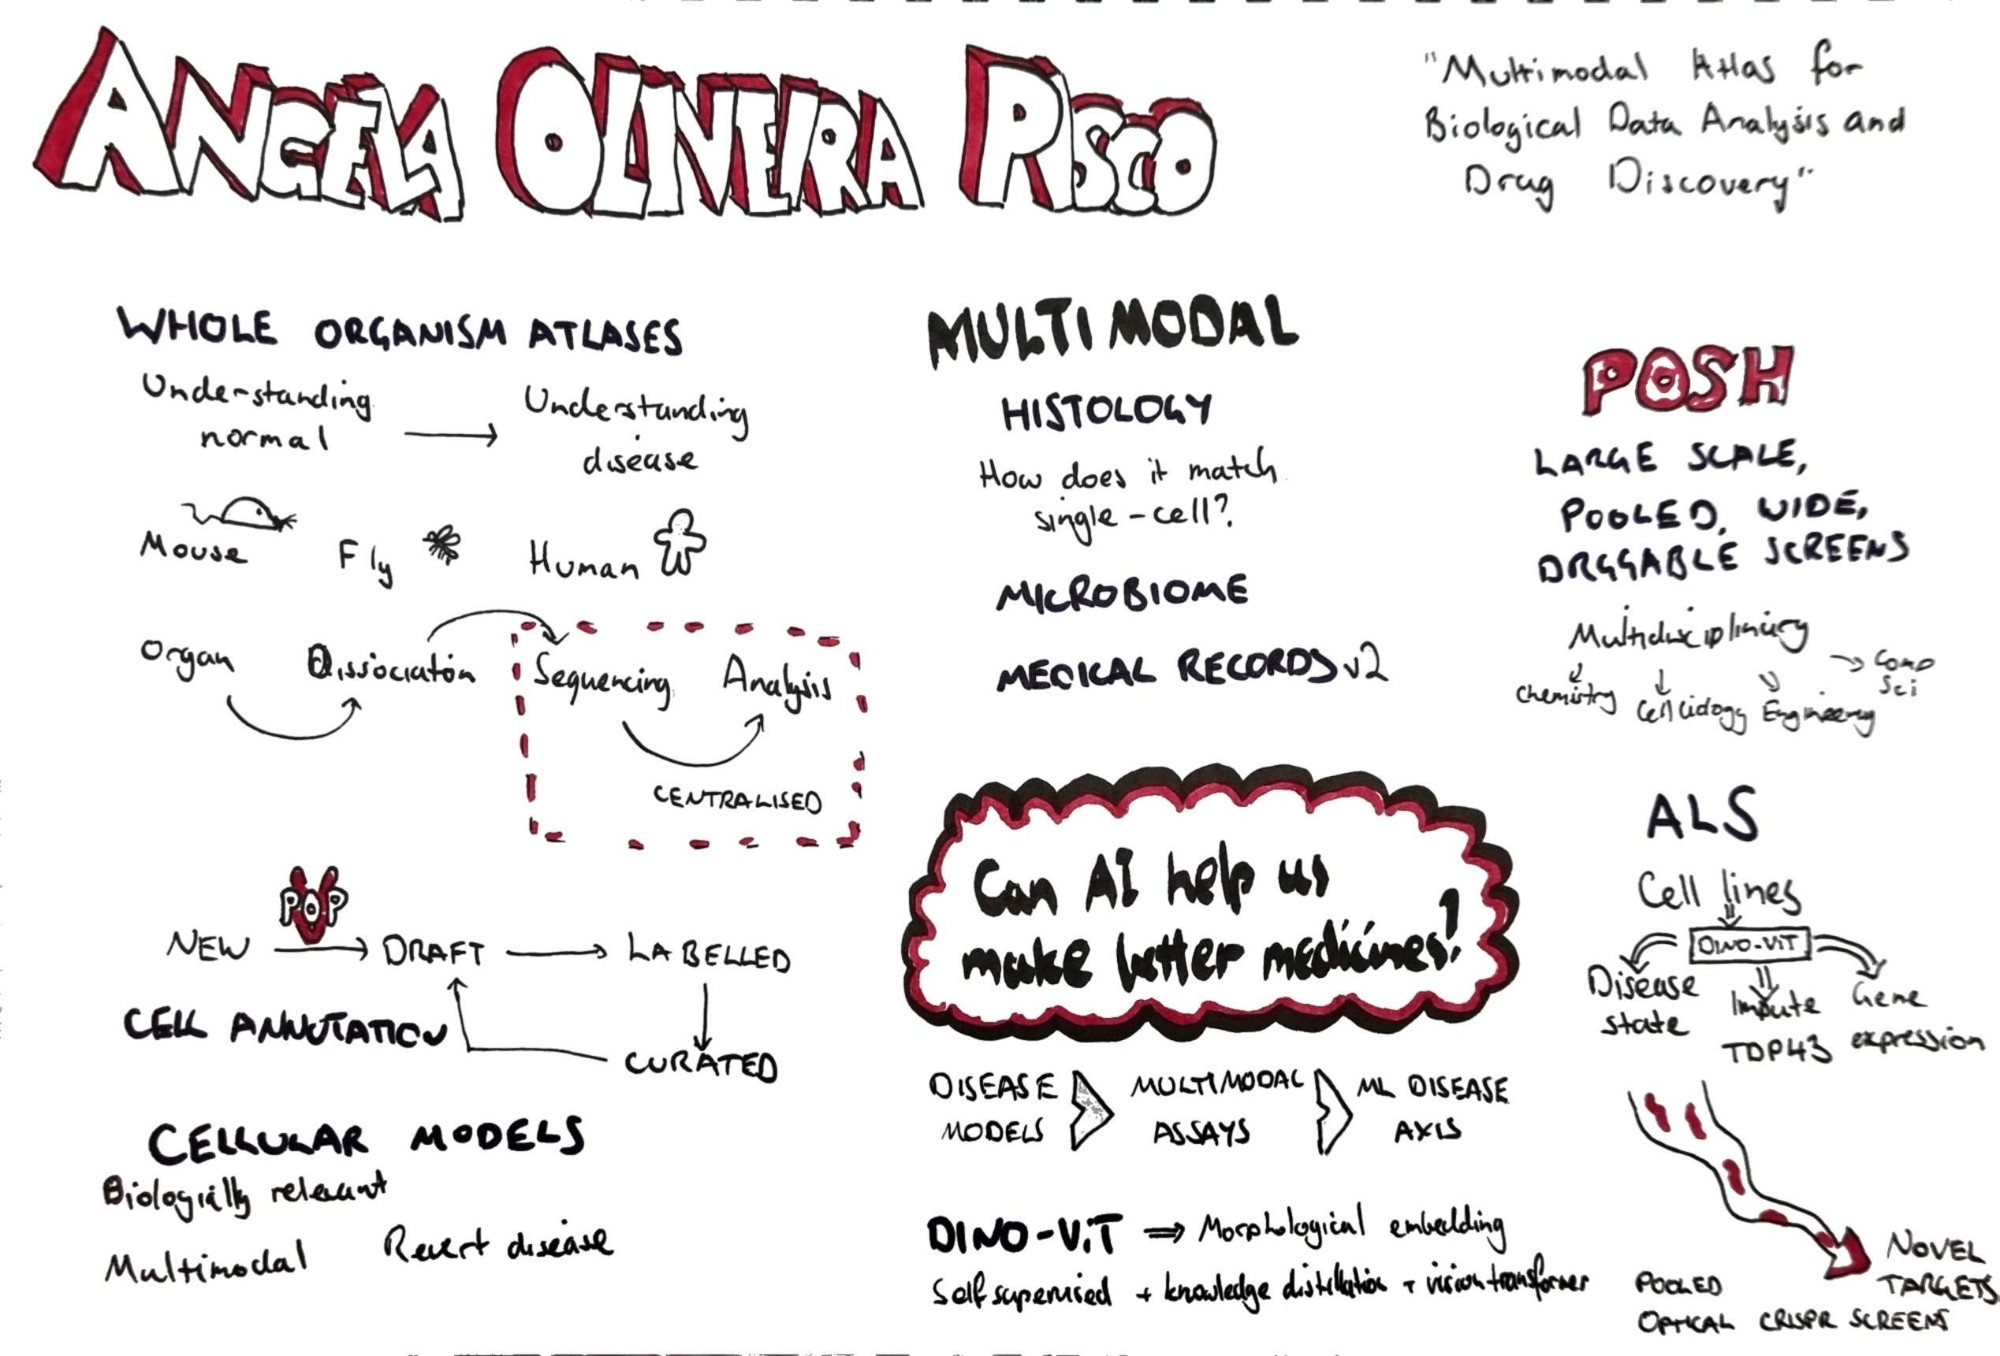 ANGELA OLIVEIRA PISCO
"Multimodal Atlas for
Biological Data Analysis and
Drug Discovery"
WHOLE ORGANISM ATLASES
Understanding
normal
Understanding
disease
Mouse
Fly
Human
Organ
Dissociation
Sequencing
Analysis
CENTRALISED
POP
NEW
DRAFT
LABELLED
CELL ANNOTATION
CURATED
CELLULAR MODELS
Biologically relevant
Multimodal
Revert disease
MULTIMODAL
HISTOLOGY
How does it match
single-cell?
MICROBIOME
MEDICAL RECORDS v2
Can AI help us
make better medicines?
DISEASE
MODELS
MULTIMODAL
ASSAYS
ML DISEASE
AXIS
DINO-ViT ⇒ Morphological embedding
Self supervised + knowledge distillation + vision transformer
POSH
LARGE SCALE,
POOLED, WIDE,
DRGGABLE SCREENS
Multidisciplinary
Chemistry
Engineering
Comp
Sci
ALS
Cell lines
DINO-ViT
Disease
state
Impute
TDP43
Gene
expression
NOVEL
TARGETS
POOLED
OPTICAL CRISPR SCREENS